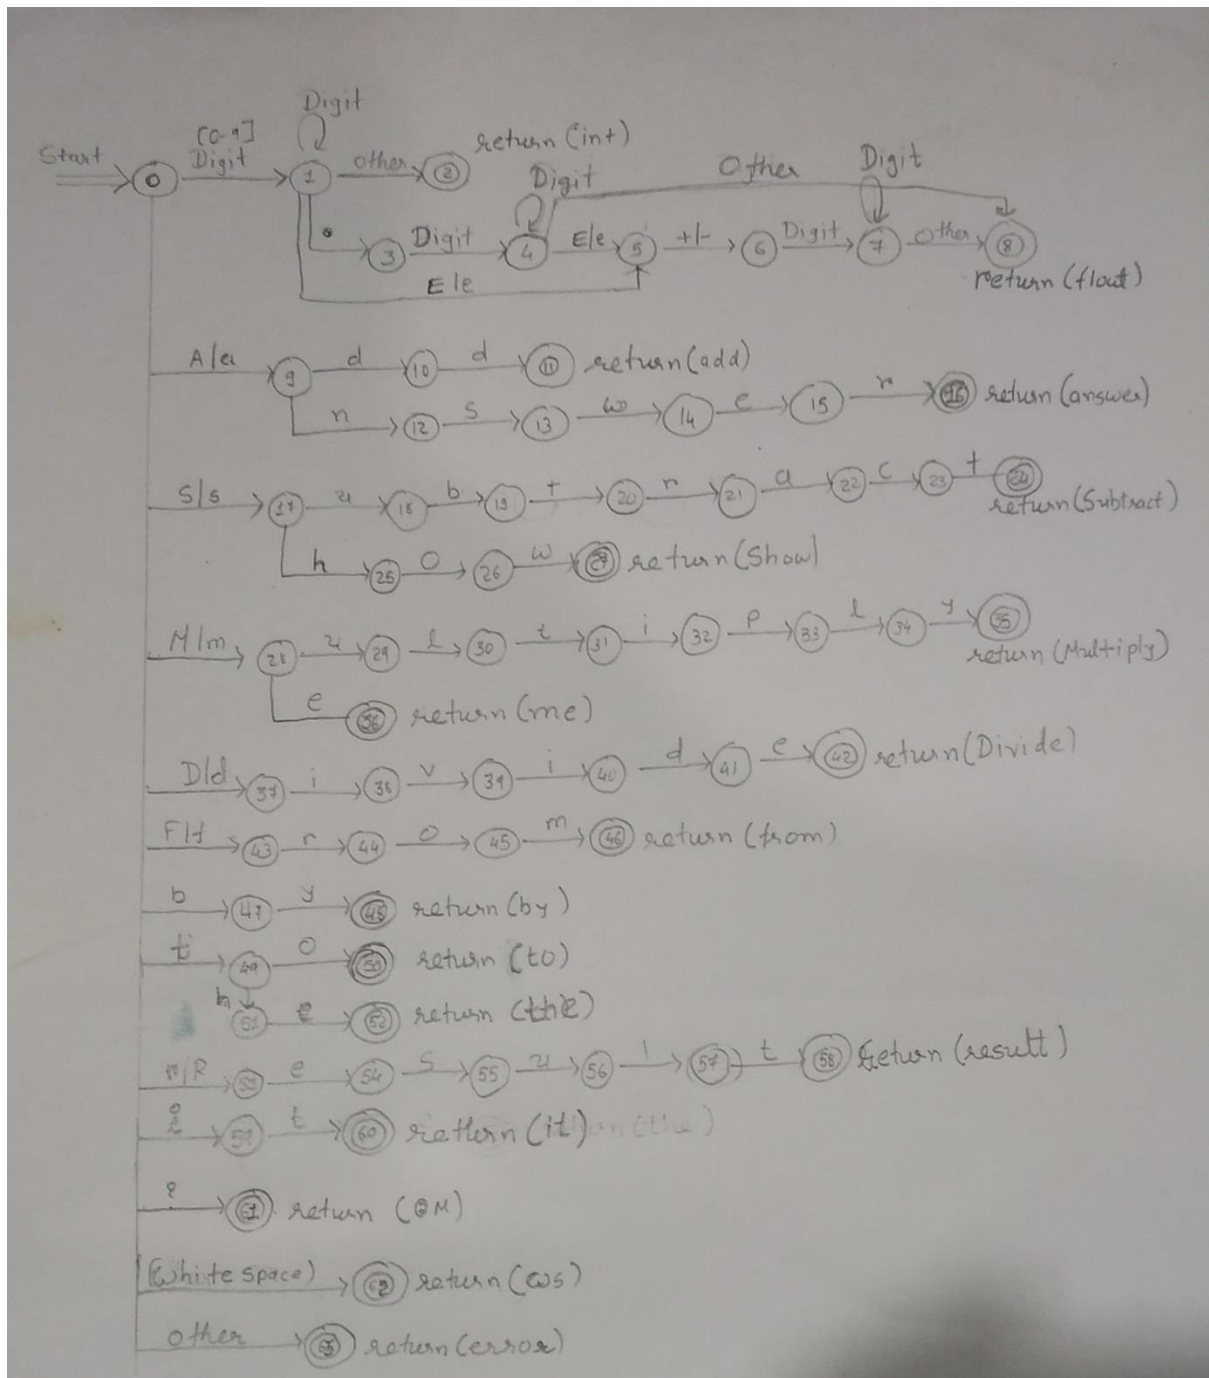 Digit
[0-9]
Start 0 Digit 1 other 2 return(int)
Digit Other Digit
. 3 Digit 4 E/e 5 +/- 6 Digit 7 Other 8
E/e return(float)
A/a 9 d 10 d 11 return(add)
n 12 s 13 w 14 e 15 r 16 return(answer)
S/s 17 u 18 b 19 t 20 r 21 a 22 c 23 t 24
return(Subtract)
h 25 o 26 w 27 return(Show)
M/m 28 u 29 l 30 t 31 i 32 p 33 l 34 y 35
return(Multiply)
e 36 return(me)
D/d 37 i 38 v 39 i 40 d 41 e 42 return(Divide)
F/f 43 r 44 o 45 m 46 return(from)
b 47 y 48 return(by)
t 49 o 50 return(to)
h 51 e 52 return(the)
r/R 53 e 54 s 55 u 56 l 57 t 58 return(result)
i 59 t 60 return(it)
? 61 return(QM)
(White space) 62 return(ws)
other 63 return(error)